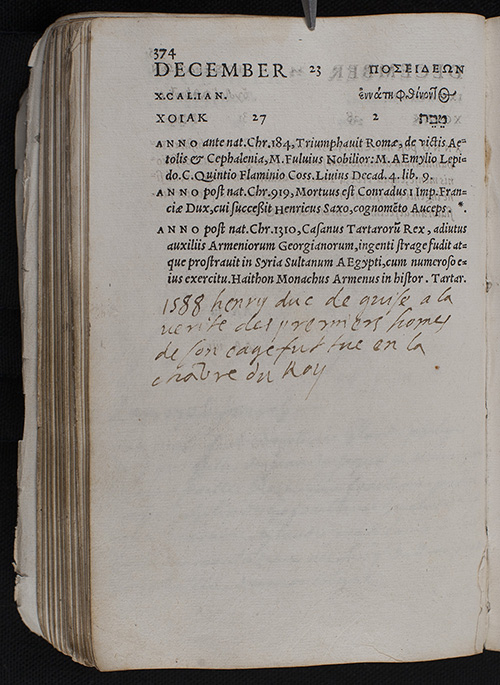 374
DECEMBER 23 ΠΟΣΕΙΔΕΩΝ
X. CALIAN. ἐννάτη φθίνοντ
XOIAK 27 2 טֵבֵת
ANNO ante nat. Chr. 184, Triumphauit Romæ, de victis Ae-
tolis & Cephalenia, M. Fuluius Nobilior: M. AEmylio Lepi-
do. C. Quintio Flaminio Coss. Liuius Decad. 4. lib. 9.
ANNO post nat. Chr. 919, Mortuus est Conradus I Imp. Fran-
ciæ Dux, cui succeßit Henricus Saxo, cognomēto Auceps. *.
ANNO post nat. Chr. 1310, Casanus Tartarorū Rex, adiutus
auxiliis Armeniorum Georgianorum, ingenti strage fudit at-
que prostrauit in Syria Sultanum AEgypti, cum numeroso e-
ius exercitu. Haithon Monachus Armenus in histor. Tartar.
1588 henry duc de guise a la
verite des premiers homes
de son eage fut tue en la
chābre du Roy